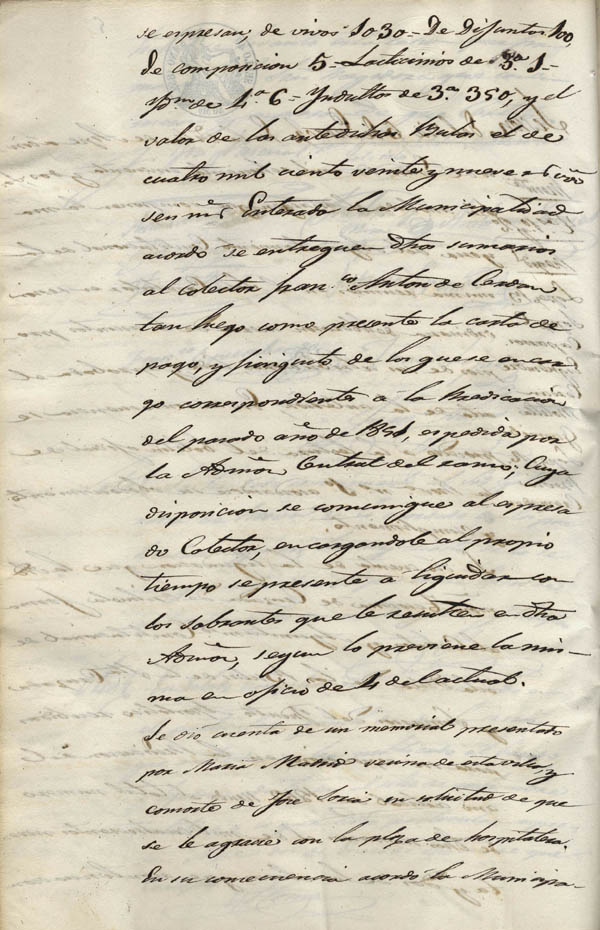 se espresan, de vivos 1030 - De Difuntos 100,
de composicion 5 - Lacticinios de 3ª 1 -
Ydm de 4ª 6 - Yndultos de 3ª 350, y el
valor de las antedichas Bulas el de
cuatro mil ciento veinte y nueve rs
Enterada la Municipalidad
acordo se entreguen dhos sumarios
al colector Franco Anton de
tan luego como presente la carta de
pago, y finiquito de los que se encar
go correspondientes a la Predicación
del pasado año de 1851, espedida por
la Admõn Central del ramo; Cuya
disposicion se comunique al espresa
do Colector, encargandole al propio
tiempo se presente a liquidar con
los sobrantes que le resulten en dha
Admõn, segun lo previene la mis-
ma en oficio de 4 del actual.
Se dió cuenta de un memorial presentado
por Maria Madrid vecina de esta villa, y
consorte de Jose Soria en solicitud de que
se le agracie con la plaza de hospitalera.
En su consecuencia acordo la Municipa-